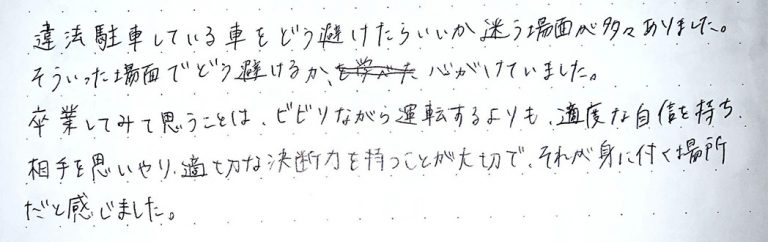 違法駐車している車をどう避けたらいいか迷う場面が多々ありました。
そういった場面でどう避けるか、を学べた 心がけていました。
卒業してみて思うことは、ビビりながら運転するよりも、適度な自信を持ち
相手を思いやり、適切な決断力を持つことが大切で、それが身に付く場所
だと感じました。